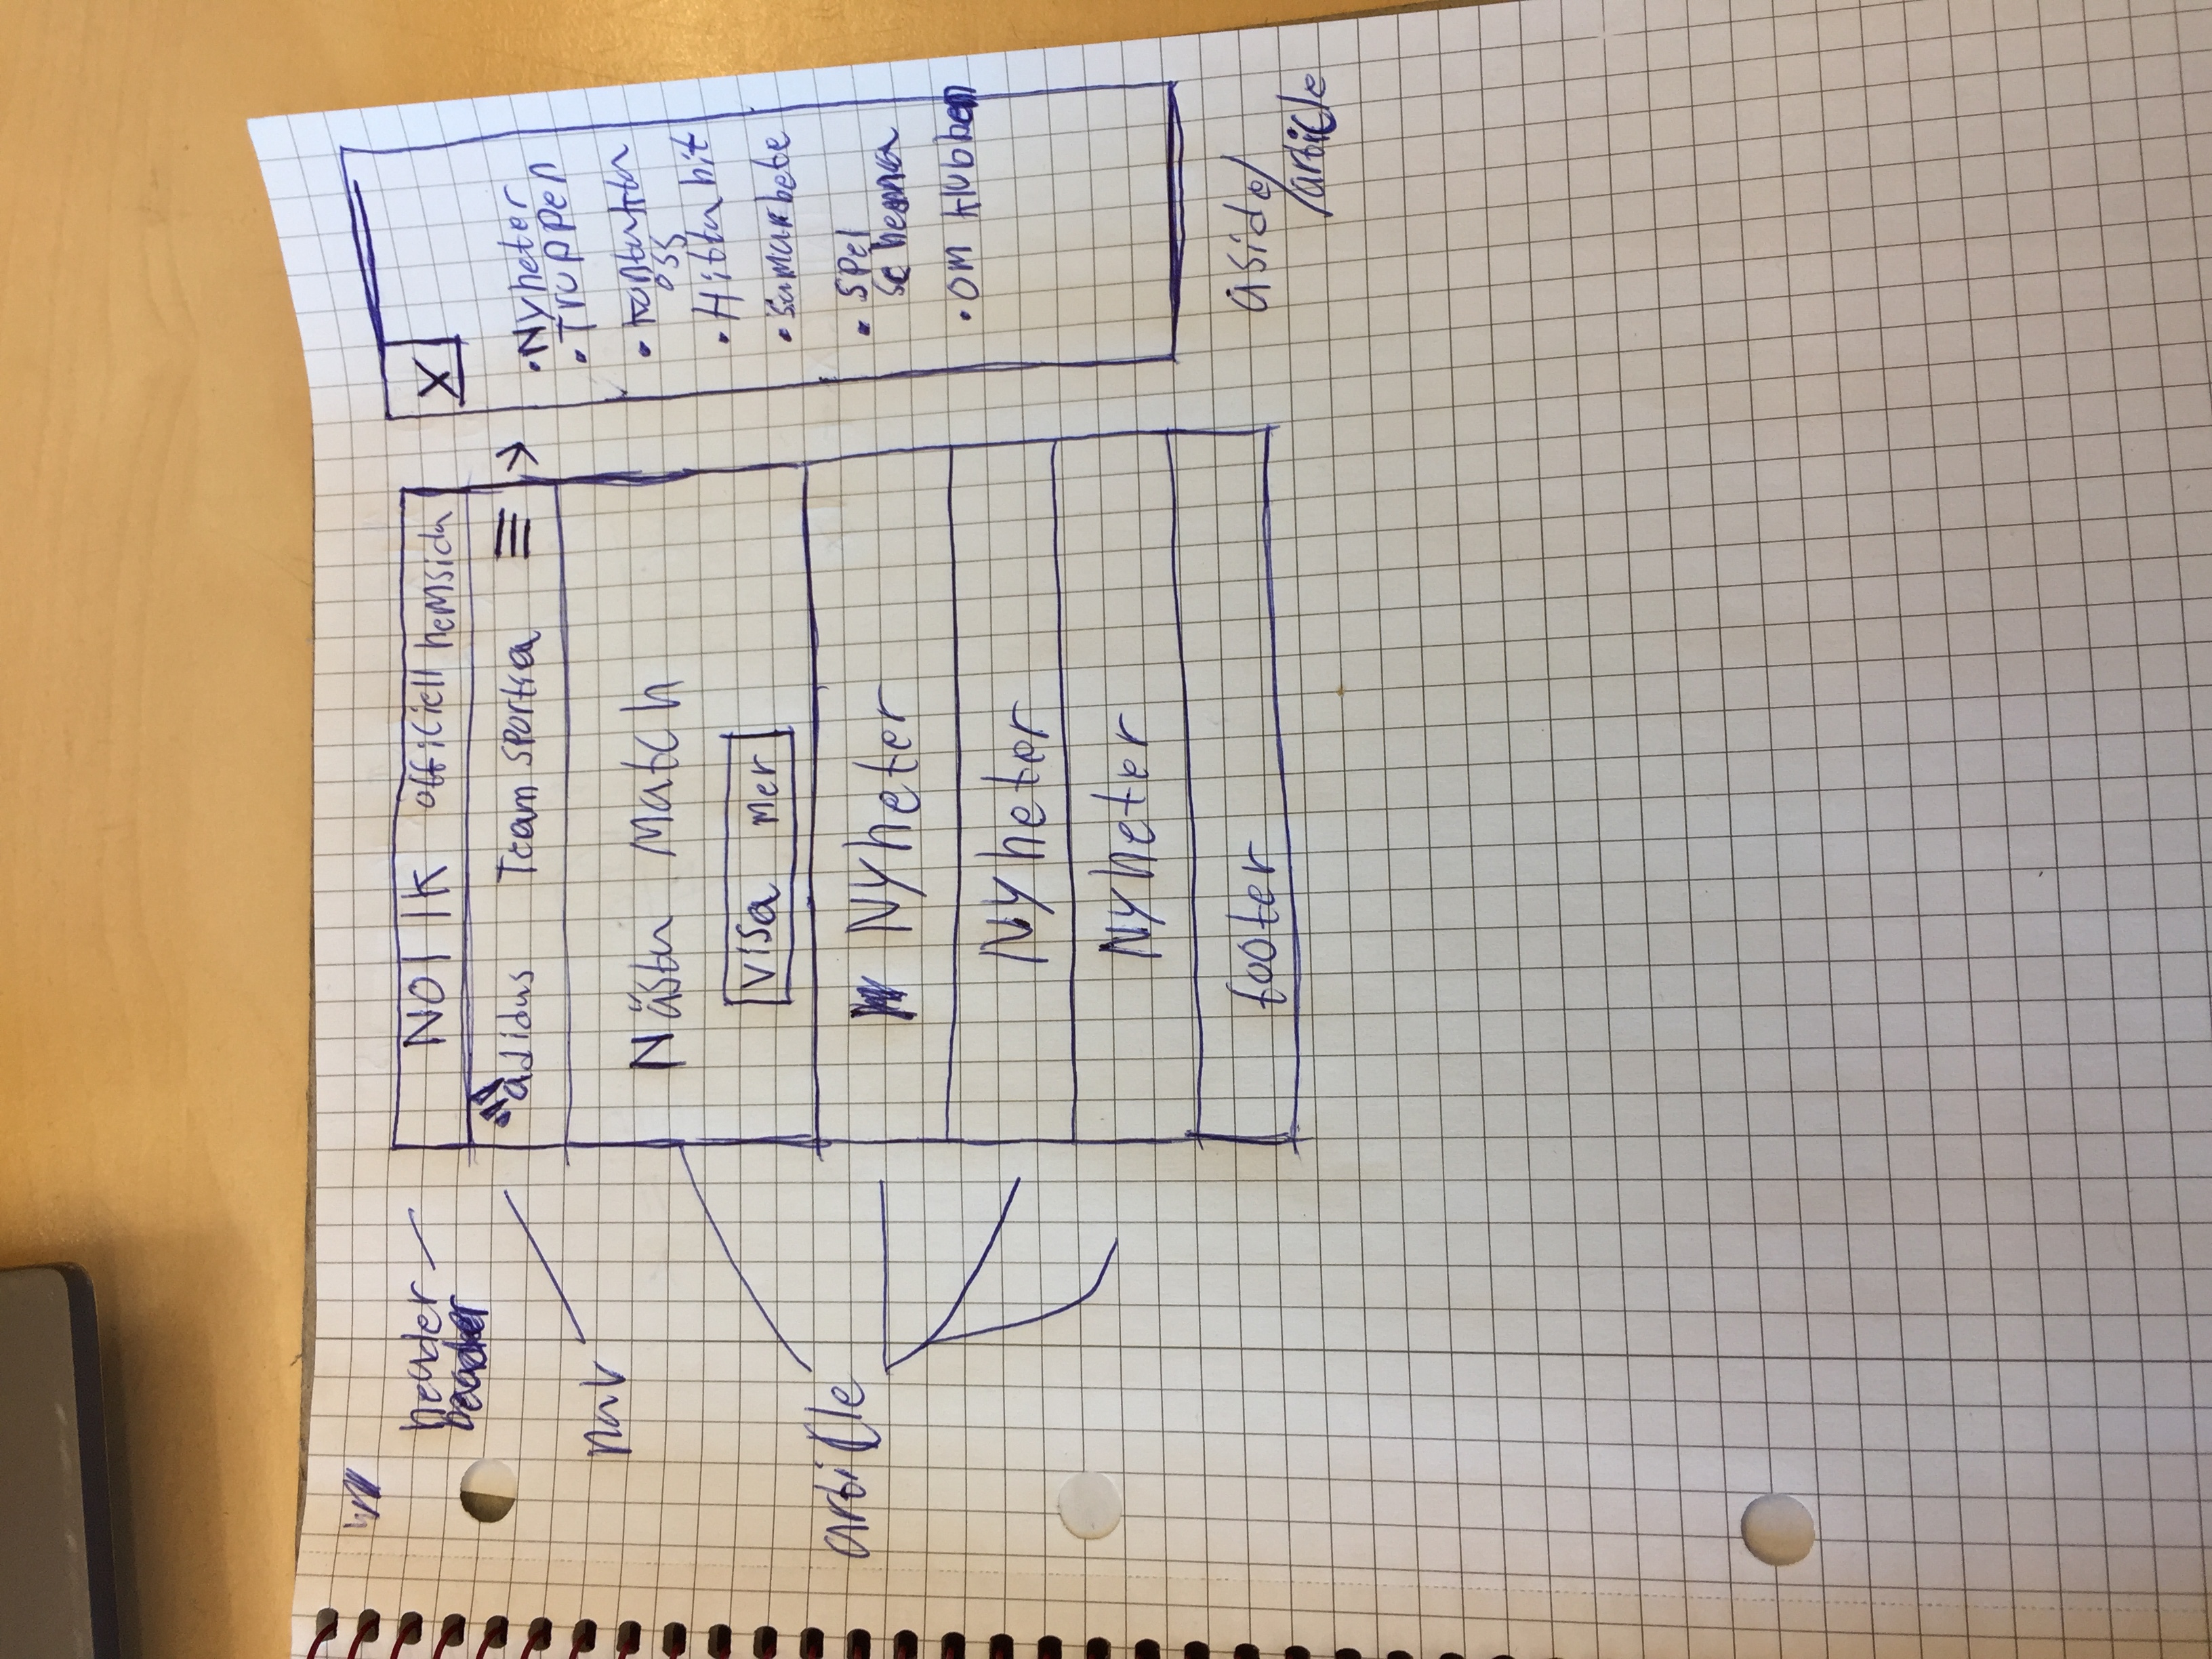 header
header
nav
article
NOL IK officiell hemsida
adidas Team sportia
Nästa Match
Visa mer
Nyheter
Nyheter
Nyheter
footer
X
• Nyheter
• Truppen
• kontakta
oss
• Hitta hit
• samarbete
• spel
schema
• om klubben
aside/
/article